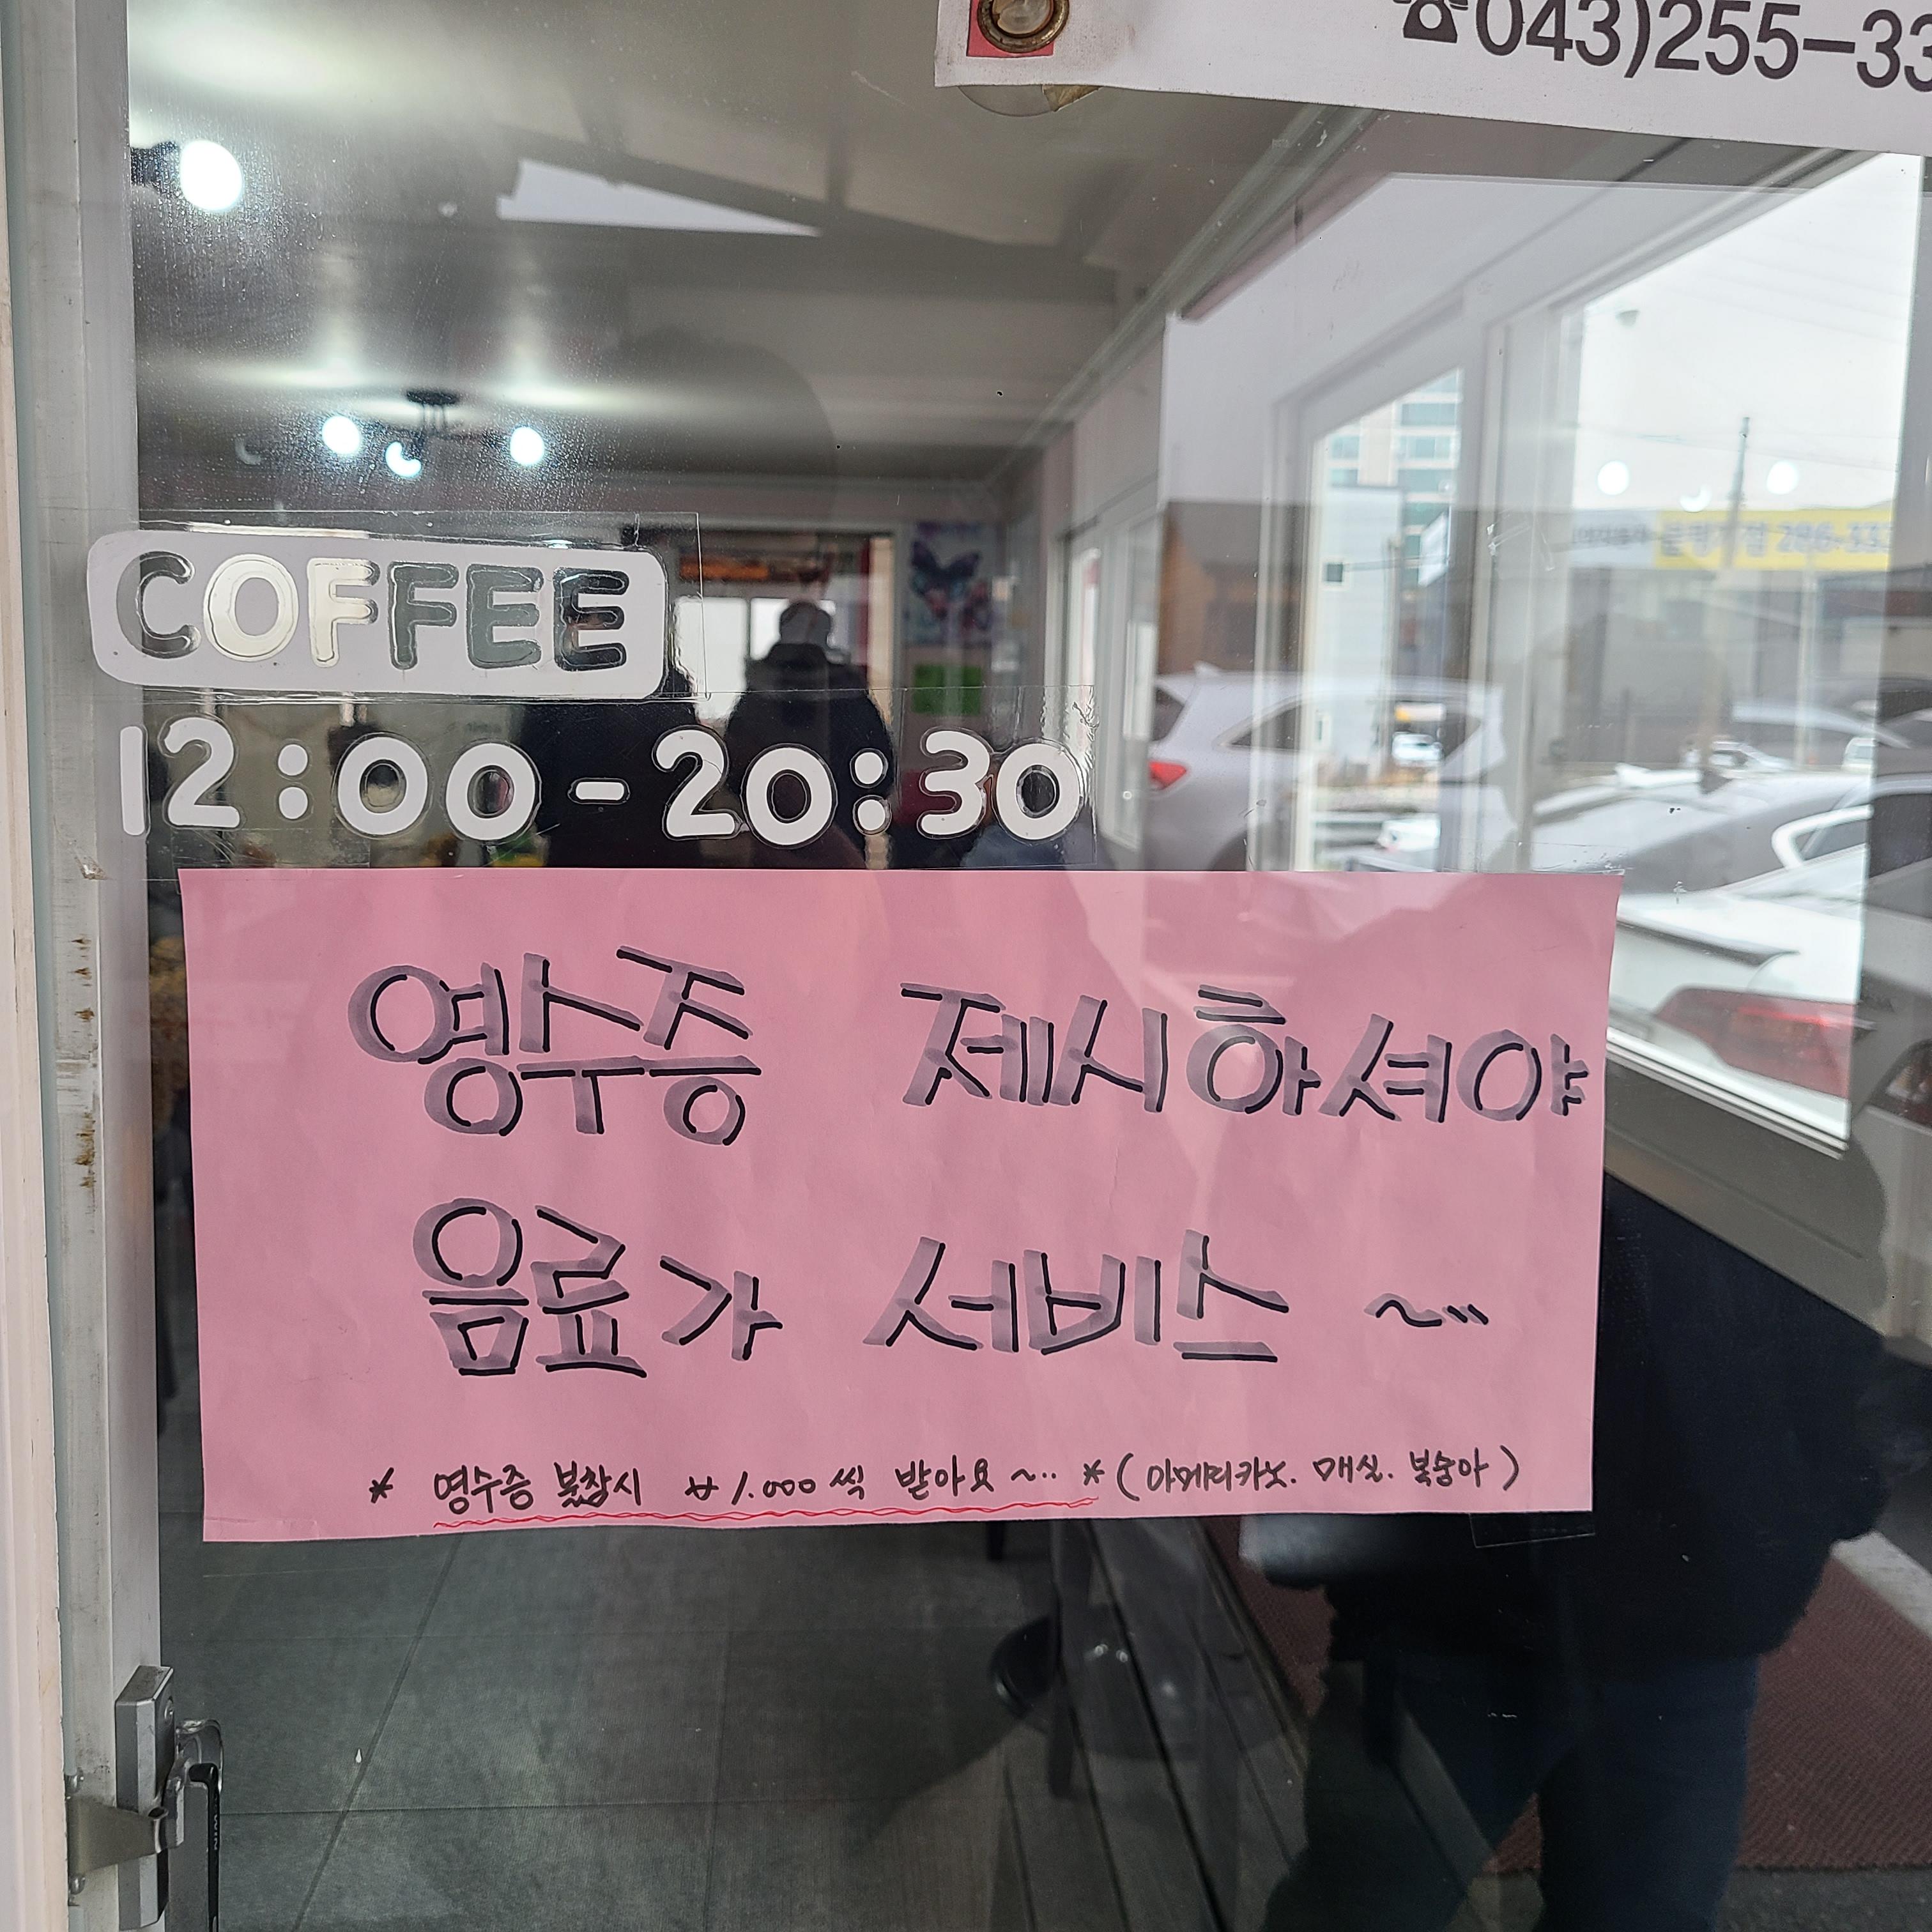 ☎043)255-33
COFFEE
12:00-20:30
영수증 제시하셔야
음료가 서비스 ~
* 영수증 불참시 ₩1.000씩 받아요~.. * (아메리카노. 매실. 복숭아)